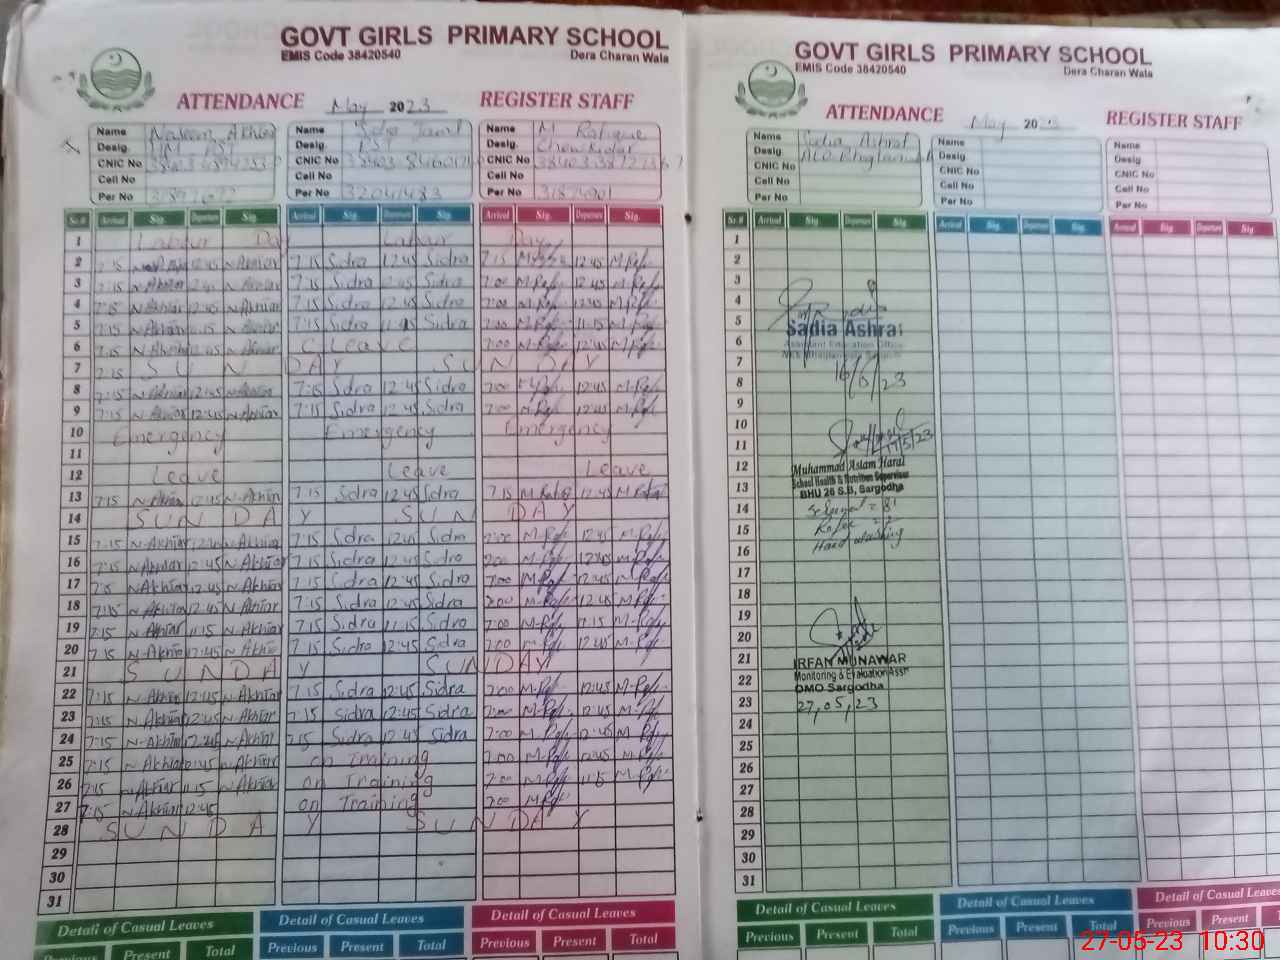 GOVT GIRLS PRIMARY SCHOOL
EMIS Code 38420540 Dera Charan Wala
ATTENDANCE May 2023 REGISTER STAFF
Name Naseem Akhtar Name Sidra Jamil Name M Rafique
Desig. HM PST Desig. PST Desig. Chowkidar
CNIC No CNIC No CNIC No
Cell No Cell No Cell No
Per No Per No 32041483 Per No 31874901
Sr.# Arrival Sig. Departure Sig. Arrival Sig. Departure Sig. Arrival Sig. Departure Sig.
1 Labour Day Labour Day
2 7:15 12:45 N-Akhtar 7:15 Sidra 12:45 Sidra 7:15 12:45 M-Rafi
3 7:15 N-Akhtar 12:45 N-Akhtar 7:15 Sidra 12:45 Sidra 7:00 M-Rafi 12:45 M-Rafi
4 7:15 N-Akhtar 12:45 N-Akhtar 7:15 Sidra 12:45 Sidra 7:00 M-Rafi 12:45 M-Rafi
5 7:15 N-Akhtar 11:15 N-Akhtar 7:15 Sidra 11:15 Sidra 7:00 M-Rafi 11:15 M-Rafi
6 7:15 N-Akhtar 12:45 N-Akhtar C Leave 7:00 M-Rafi 12:45 M-Rafi
7 7:15 SUNDAY SUNDAY
8 7:15 N-Akhtar 12:45 N-Akhtar 7:15 Sidra 12:45 Sidra 7:00 M-Rafi 12:45 M-Rafi
9 7:15 N-Akhtar 12:45 N-Akhtar 7:15 Sidra 12:45 Sidra 7:00 M-Rafi 12:45 M-Rafi
10 Emergency Emergency Emergency
11
12 Leave Leave Leave
13 7:15 N-Akhtar 12:45 N-Akhtar 7:15 Sidra 12:45 Sidra 7:15 M Rafiq 12:45 M Rafiq
14 SUNDAY SUNDAY
15 7:15 N-Akhtar 12:45 N-Akhtar 7:15 Sidra 12:45 Sidra 7:00 M-Rafi 12:45 M-Rafi
16 7:15 N-Akhtar 12:45 N-Akhtar 7:15 Sidra 12:45 Sidra 7:00 M-Rafi 12:45 M-Rafi
17 7:15 N-Akhtar 12:45 N-Akhtar 7:15 Sidra 12:45 Sidra 7:00 M-Rafi 12:45 M-Rafi
18 7:15 N-Akhtar 12:45 N-Akhtar 7:15 Sidra 12:45 Sidra 7:00 M-Rafi 12:45 M-Rafi
19 7:15 N-Akhtar 11:15 N-Akhtar 7:15 Sidra 11:15 Sidra 7:00 M-Rafi 11:15 M-Rafi
20 7:15 N-Akhtar 12:45 N-Akhtar 7:15 Sidra 12:45 Sidra 7:00 M-Rafi 12:45 M-Rafi
21 SUNDAY SUNDAY
22 7:15 N-Akhtar 12:45 N-Akhtar 7:15 Sidra 12:45 Sidra 7:00 M-Rafi 12:45 M-Rafi
23 7:15 N-Akhtar 12:45 N-Akhtar 7:15 Sidra 12:45 Sidra 7:00 M-Rafi 12:45 M-Rafi
24 7:15 N-Akhtar 12:45 N-Akhtar 7:15 Sidra 12:45 Sidra 7:00 M-Rafi 12:45 M-Rafi
25 7:15 N-Akhtar 12:45 N-Akhtar on Training 7:00 M-Rafi 12:45 M-Rafi
26 7:15 N-Akhtar 11:15 N-Akhtar on Training 7:00 M-Rafi 11:15 M-Rafi
27 7:15 N-Akhtar 12:45 on Training 7:00 M-Rafi
28 SUNDAY SUNDAY
29
30
31
Detail of Casual Leaves Detail of Casual Leaves Detail of Casual Leaves
Previous Present Total Previous Present Total Previous Present Total
GOVT GIRLS PRIMARY SCHOOL
EMIS Code 38420540 Dera Charan Wala
ATTENDANCE May 2023 REGISTER STAFF
Name Sadia Ashraf Name Name
Desig. AEO Desig. Desig.
CNIC No CNIC No CNIC No
Cell No Cell No Cell No
Per No Per No Per No
Sr.# Arrival Sig. Departure Sig. Arrival Sig. Departure Sig. Arrival Sig. Departure Sig.
1
2
3
4
5
Sadia Ashraf
6 Assistant Education Officer
7
16/5/23
8
9
10
11 17/5/23
12 Muhammad Aslam Haral
School Health & Nutrition Supervisor
13 BHU 26 S.B, Sargodha
14
15
Hand washing
16
17
18
19
20
21 IRFAN MUNAWAR
Monitoring & Evaluation Asst
22 DMO Sargodha
23 27,05,23
24
25
26
27
28
29
30
31
Detail of Casual Leaves Detail of Casual Leaves Detail of Casual Leaves
Previous Present Total Previous Present Total Previous Present
27-05-23 10:30